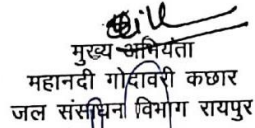 मुख्य अभियंता
महानदी गोदावरी कछार
जल संसाधन विभाग रायपुर